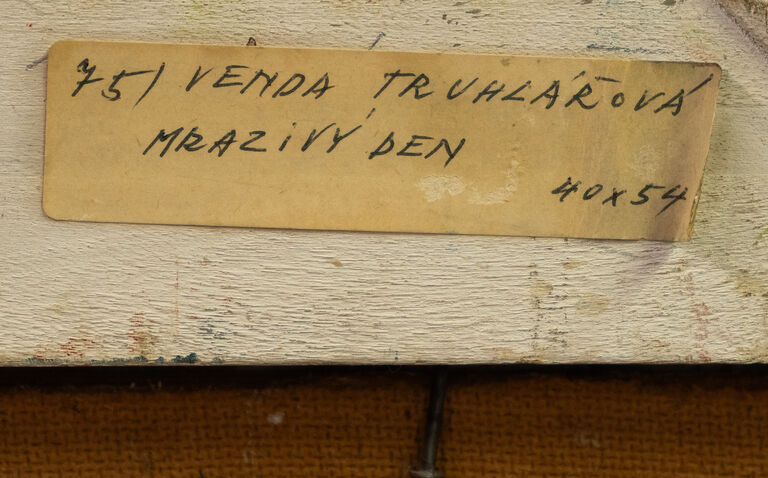 75) VENDA TRUHLÁŘOVÁ
MRAZIVÝ DEN
40x54